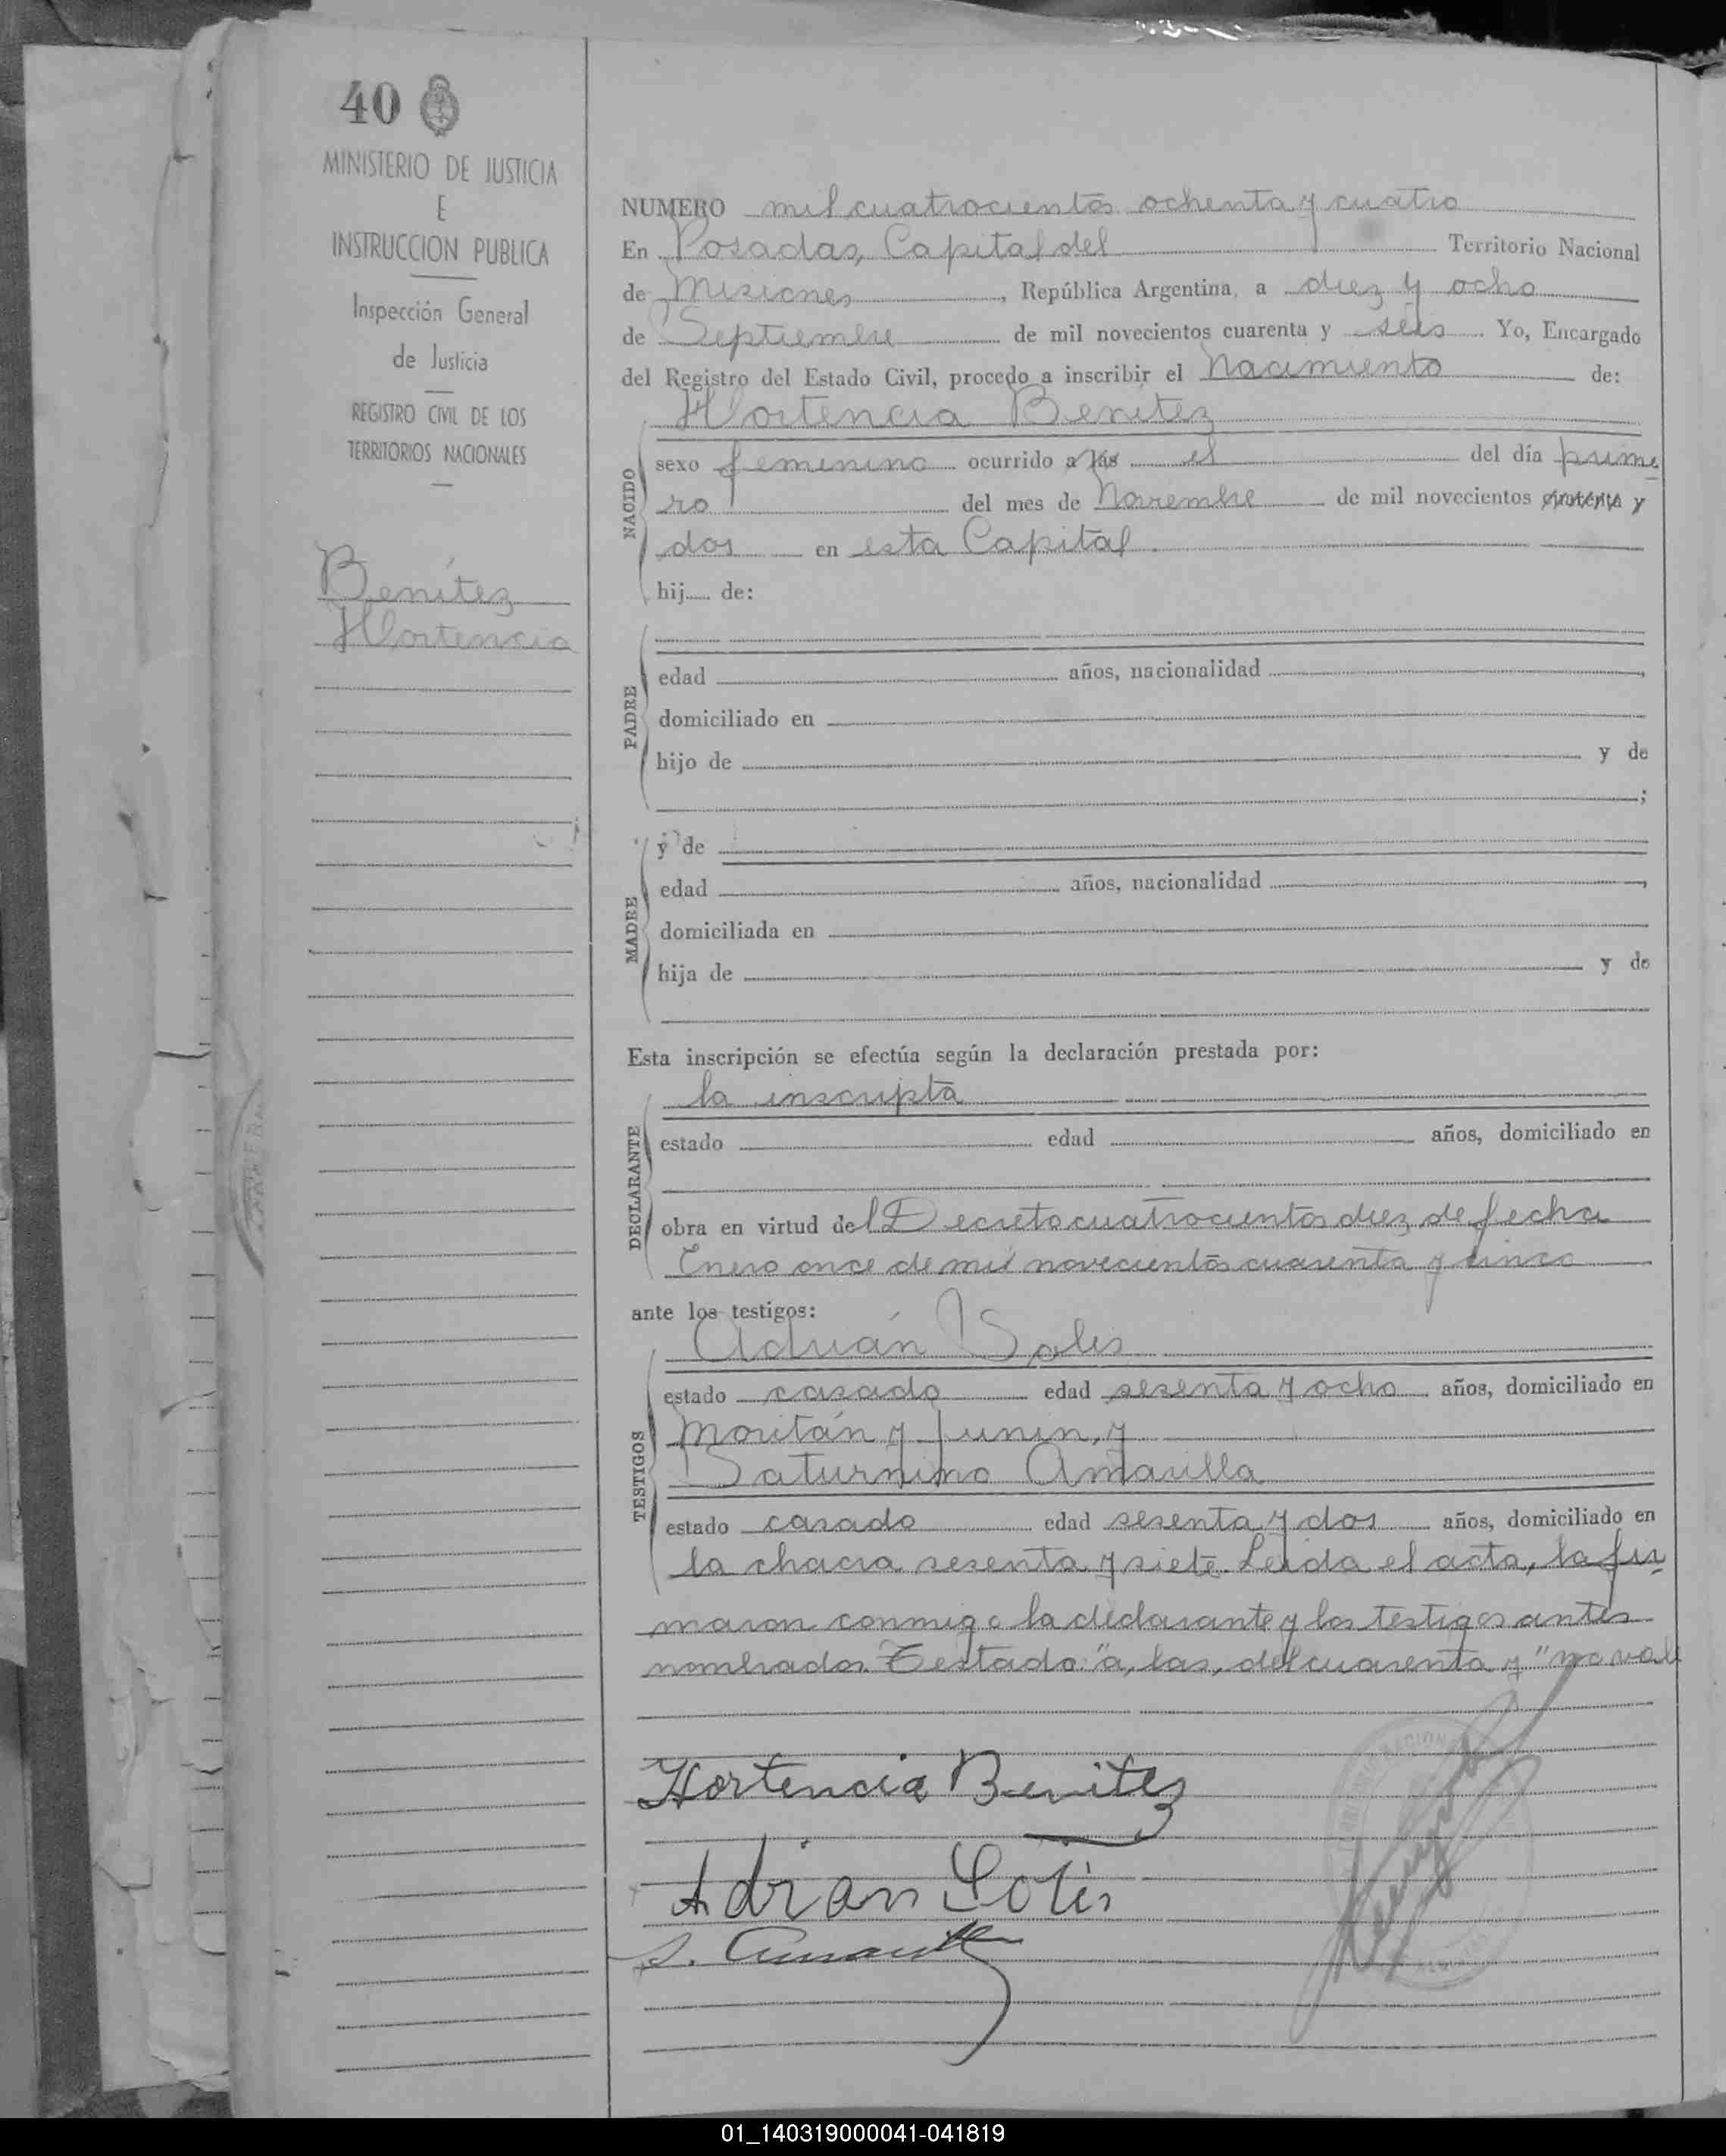 40
MINISTERIO DE JUSTICIA
E
INSTRUCCION PUBLICA
Inspección General
de Justicia
REGISTRO CIVIL DE LOS
TERRITORIOS NACIONALES
Benítez
Hortencia
NUMERO mil cuatrocientos ochenta y cuatro
En Posadas, Capital del Territorio Nacional
de Misiones, República Argentina, a diez y ocho
de Septiembre de mil novecientos cuarenta y seis. Yo, Encargado
del Registro del Estado Civil, procedo a inscribir el Nacimiento de:
Hortencia Benítez
NACIDO
sexo femenino ocurrido a las el del día prime
ro del mes de Noviembre de mil novecientos cuarenta y
dos en esta Capital
hij de:
PADRE
edad años, nacionalidad
domiciliado en
hijo de y de
;
MADRE
y de
edad años, nacionalidad ,
domiciliada en
hija de y de
Esta inscripción se efectúa según la declaración prestada por:
DECLARANTE
la inscripta
estado edad años, domiciliado en
obra en virtud del Decreto cuatrocientos diez de fecha
Enero once de mil novecientos cuarenta y cinco
ante los testigos:
TESTIGOS
Adrián Solis
estado casado edad sesenta y ocho años, domiciliado en
Moritán y Junin, y
Saturnino Amarilla
estado casado edad sesenta y dos años, domiciliado en
la chacra sesenta y siete. Leida el acta, la fir
maron conmigo la declarante y los testigos antes
nombrados. Testado: "a, las, del cuarenta y" no vale
Hortencia Benitez
Adrian Solis
S. Amarilla
01_140319000041-041819